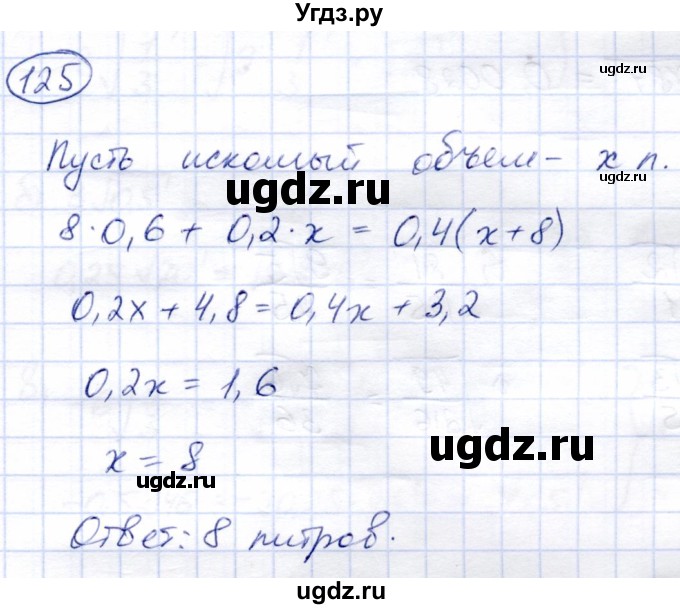 Угдз.ру
125
ugdz.ru
Пусть искомый объем - х л.
ugdz.ru
ugdz.ru
8·0,6 + 0,2·х = 0,4(х+8)
0,2х + 4,8 = 0,4х + 3,2
0,2х = 1,6
ugdz.ru
х = 8
ugdz.ru
Ответ: 8 литров.
ugdz.ru